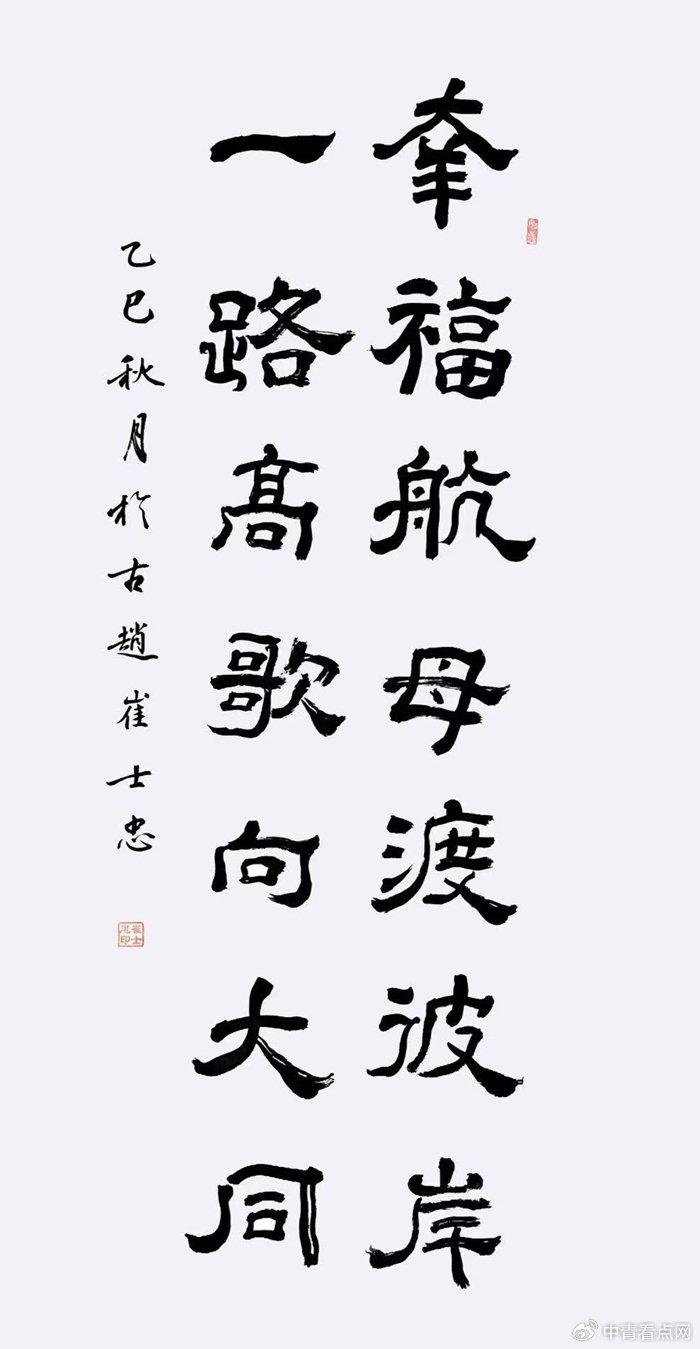 幸福航母渡彼岸
一路髙歌向大同
乙巳秋月於古趙崔士忠
崔士忠印
中青看点网